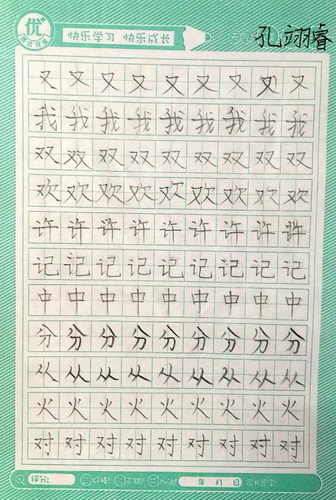 优
快乐学习 快乐成长
孔翊睿
又又又又又又又又又
我我我我我我我我我
双双双双双双双双双
欢欢欢欢欢欢欢欢欢
许许许许许许许许许
记记记记记记记记记
中中中中中中中中中
分分分分分分分分分
从从从从从从从从从
火火火火火火火火火
对对对对对对对对对
评分:
年 月 日